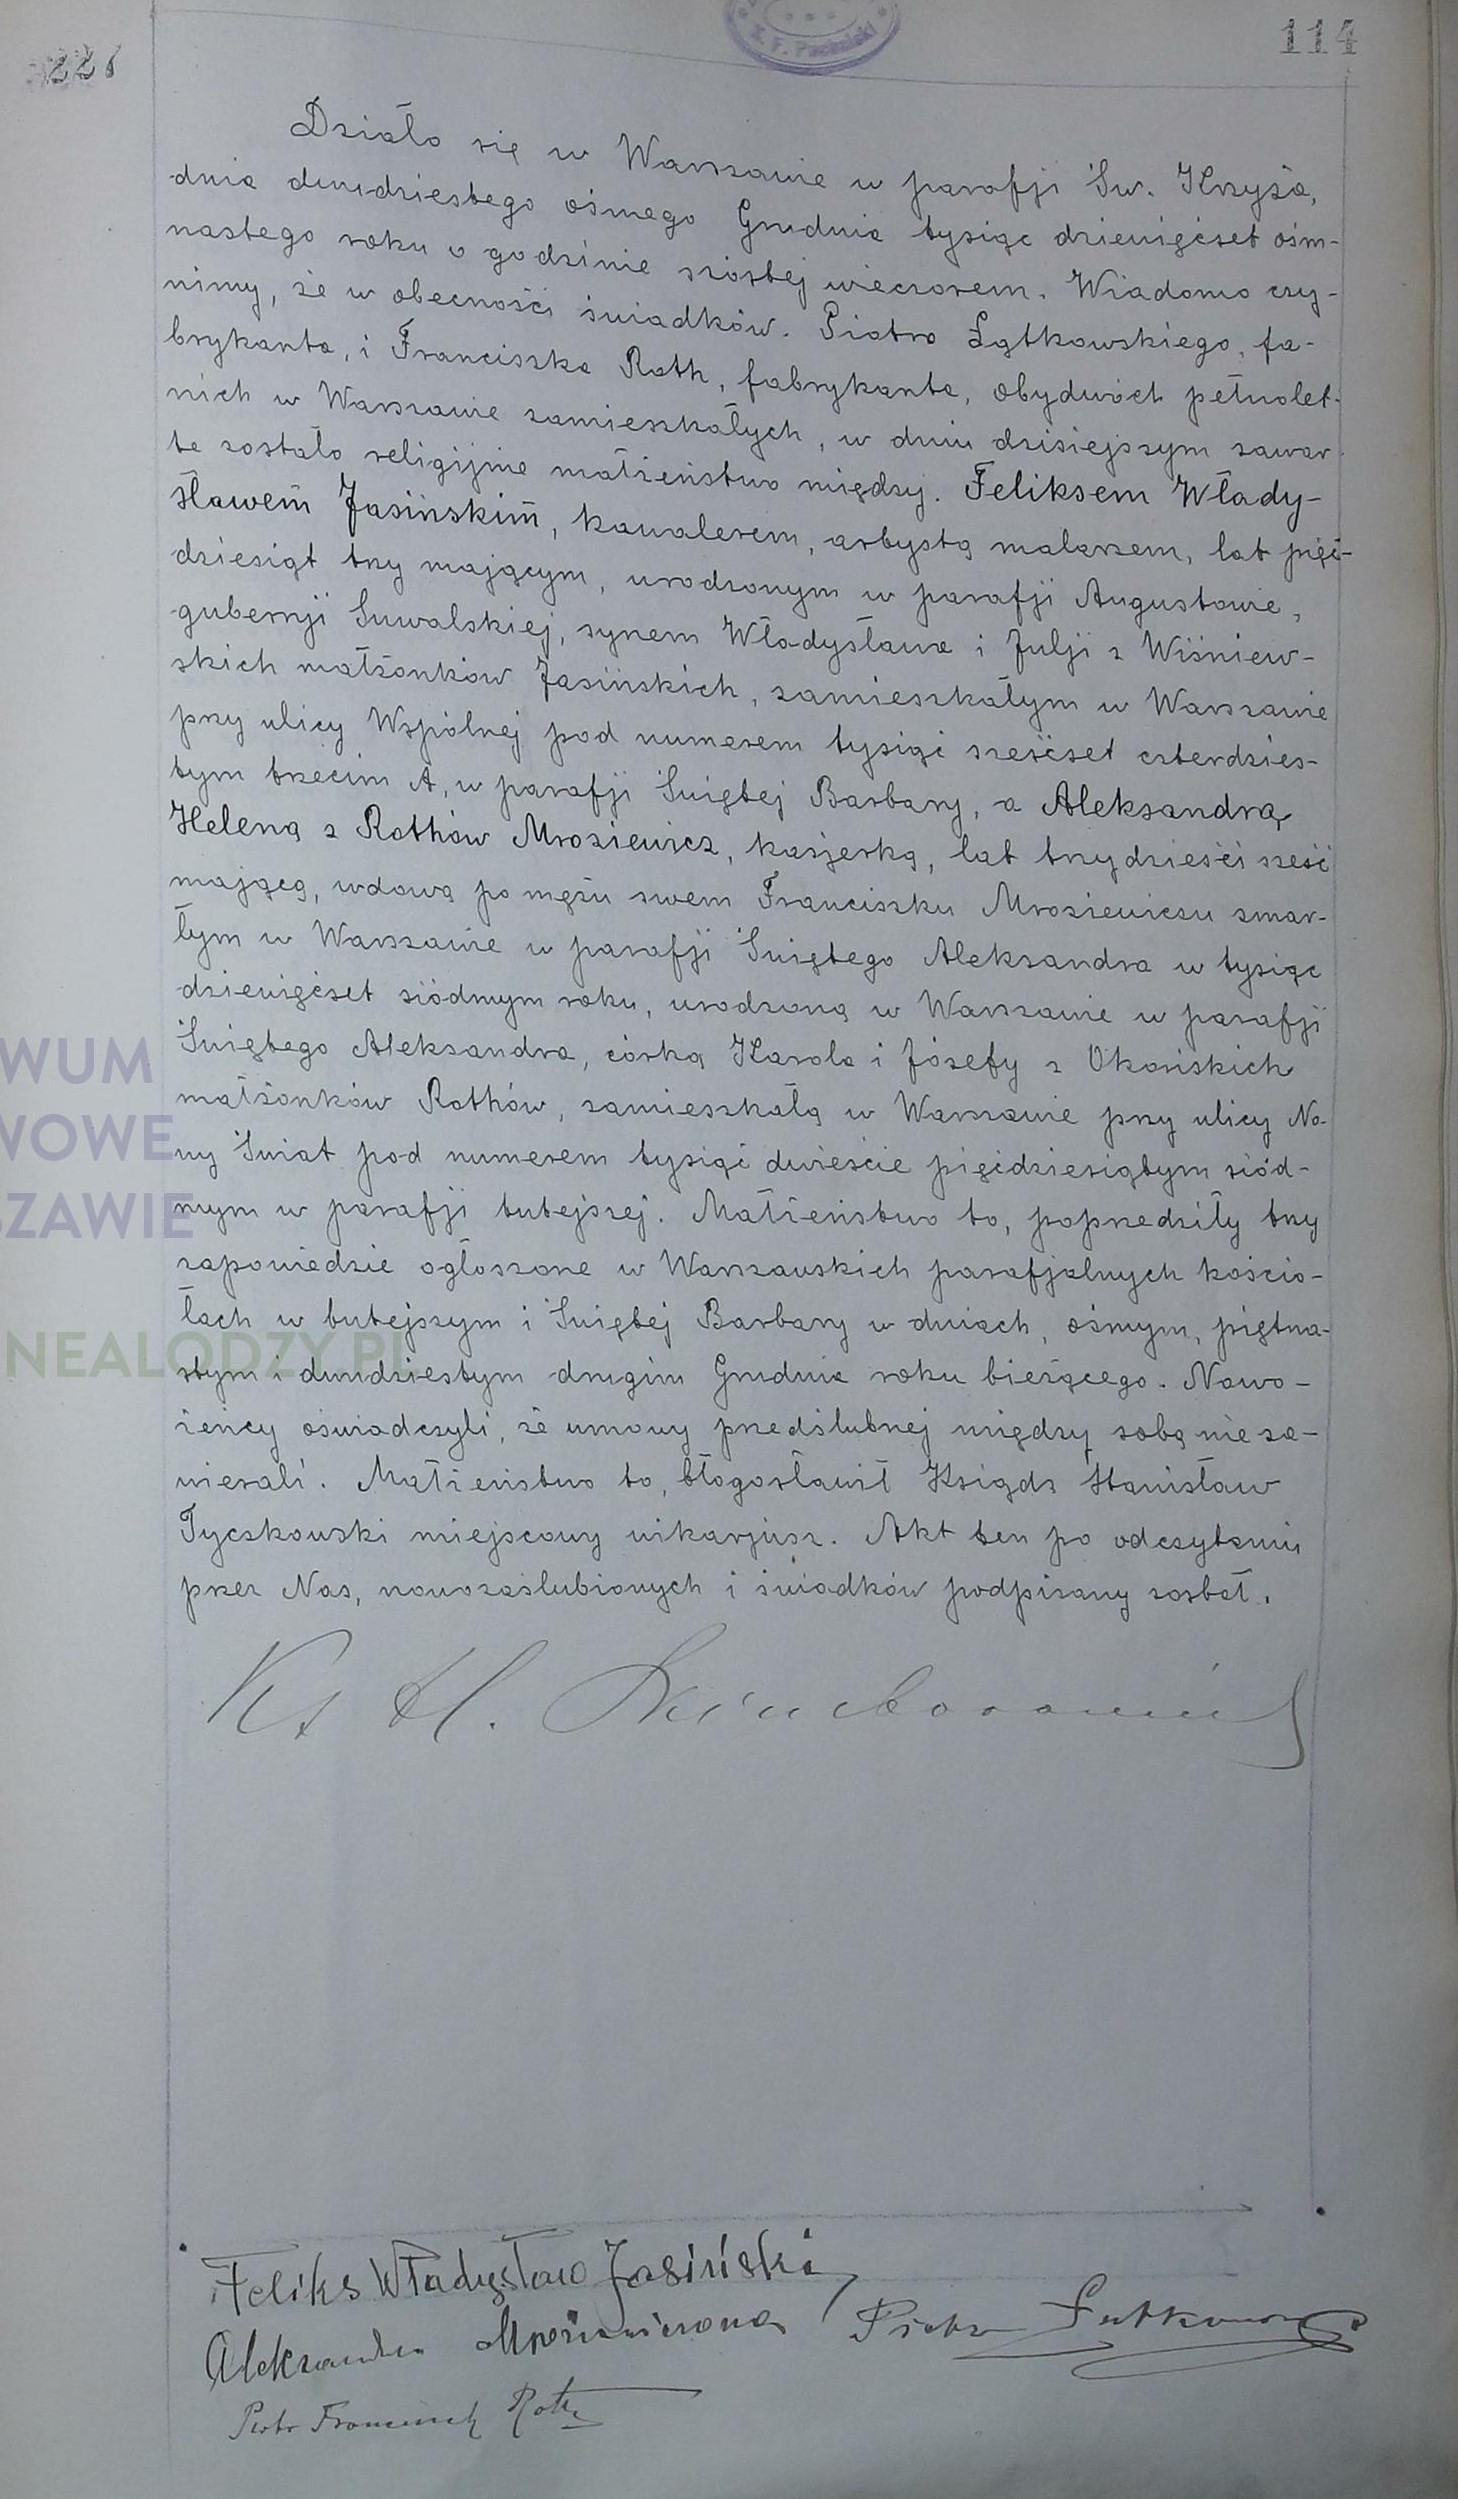 114
227
Działo się w Warszawie w parafji Św. Krzyża,
dnia dwudziestego ósmego Grudnia tysiąc dziewięćset ośm-
nastego roku o godzinie szóstej wieczorem. Wiadomo czy-
nimy, że w obecności świadków. Piotra Łątkowskiego, fa-
brykanta, i Franciszka Roth, fabrykanta, obydwóch pełnolet-
nich w Warszawie zamieszkałych, w dniu dzisiejszym zawar-
te zostało religijne małżeństwo między. Feliksem Włady-
sławem Jasińskim, kawalerem, artystą malarzem, lat pięć-
dziesiąt trzy mającym, urodzonym w parafji Augustowie,
gubernji Suwalskiej, synem Władysława i Julji z Wiśniew-
skich małżonków Jasińskich, zamieszkałym w Warszawie
przy ulicy Wspólnej pod numerem tysiąć sześćset czterdzies-
tym trzecim A, w parafji Świętej Barbary, a Aleksandrą
Heleną z Rothów Mroziewicz, kasjerką, lat trzydzieści sześć
mającą, wdową po mężu swem Franciszku Mroziewiczu zmar-
łym w Warszawie w parafji Świętego Aleksandra w tysiąc
dziewięćset siódmym roku, urodzoną w Warszawie w parafji
Świętego Aleksandra, córką Karola i Józefy z Okońskich
małżonków Rothów, zamieszkałą w Warszawie przy ulicy No-
wy Świat pod numerem tysiąć dwieście pięćdziesiątym siód-
mym w parafji tutejszej. Małżeństwo to, poprzedziły trzy
zapowiedzie ogłoszone w Warszawskich parafjalnych kościo-
łach w tutejszym i Świętej Barbary w dniach, ósmym, piętna-
stym i dwudziestym drugim Grudnia roku bieżącego. Nowo-
żeńcy oświadczyli, że umowy przedślubnej między sobą nie za-
wierali. Małżeństwo to, błogosławił Ksiądz Stanisław
Tyczkowski miejscowy wikarjusz. Akt ten po odczytaniu
przez Nas, nowozaślubionych i świadków podpisany został.
Ks
Feliks Władysław Jasiński
Aleksandra Mroziewiczowa Piotr
Piotr Franciszek Roth